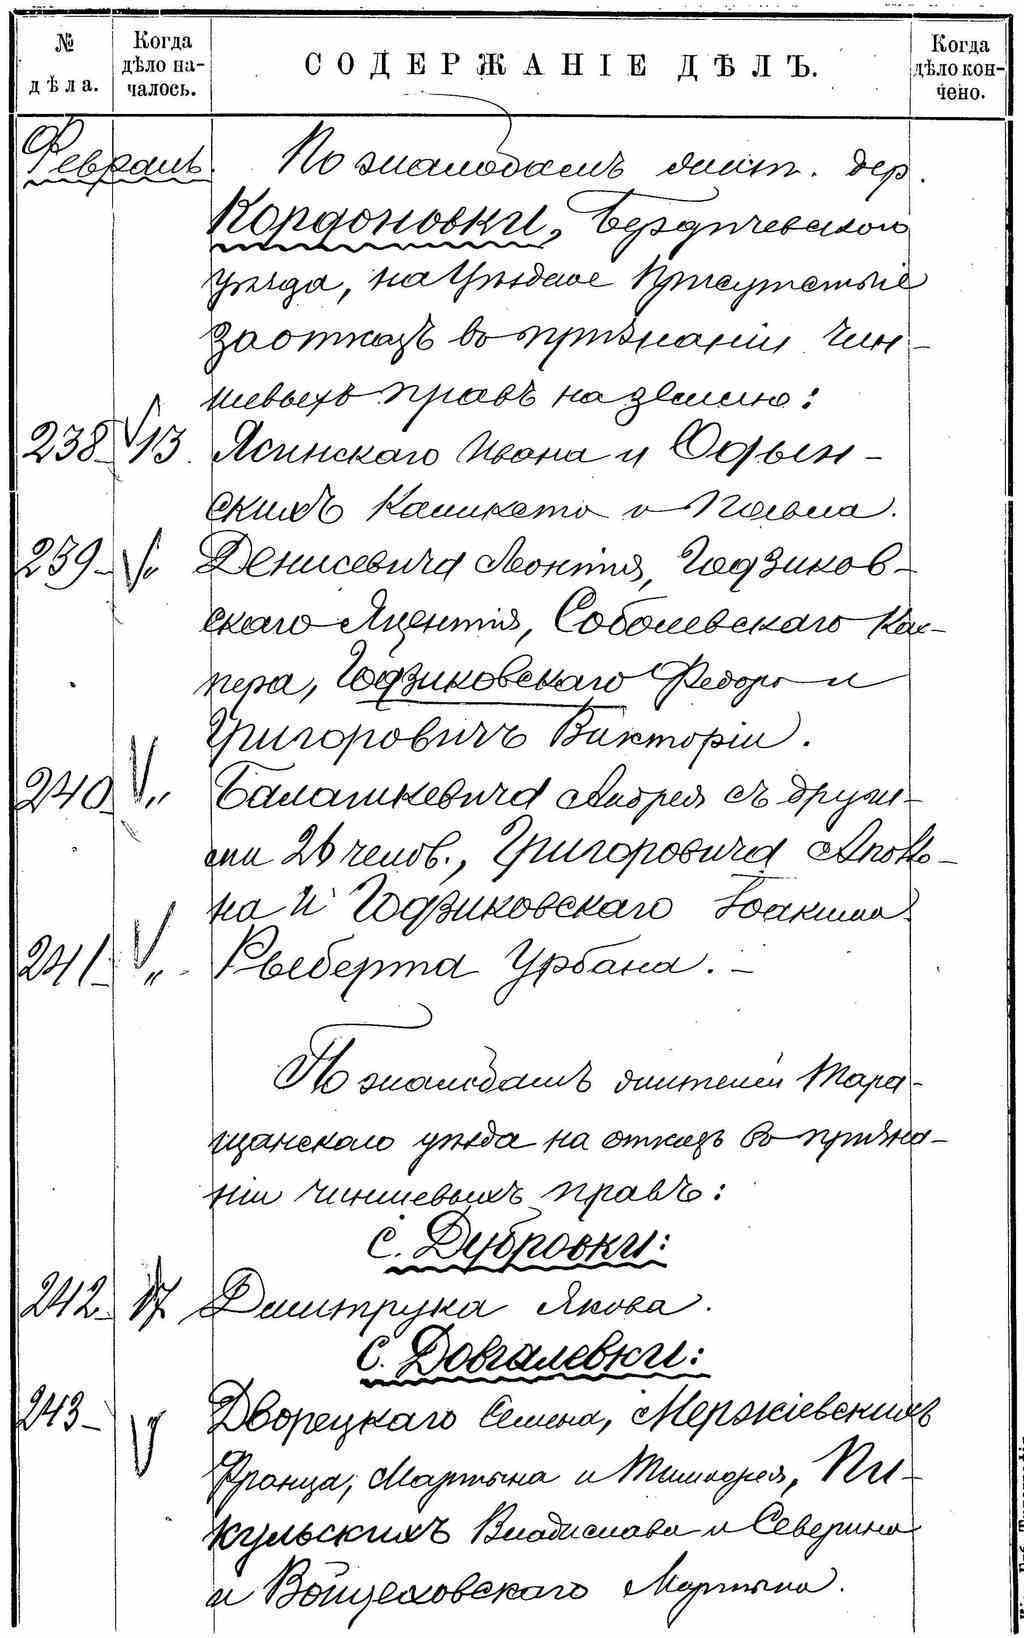 № дѣла.
Когда дѣло началось.
СОДЕРЖАНІЕ ДѢЛЪ.
Когда дѣло кончено.
Февраль. По жалобамъ жит. дер.
Кордоновки, Бердичевскаго
уѣзда, на Уѣздное Присутствіе
за отказъ въ признаніи чин-
шевыхъ правъ на землю:
238 13. Ясинскаго Ивана и Одын-
скихъ Каликста и Павла.
239 " Денисевича Леонтія, Годзиков-
скаго Яцентія, Соболевскаго Кас-
пера, Годзиковскаго Федора и
Григоровичъ Викторіи.
240 " Балашкевича Андрея съ други-
ми 26 челов., Григоровича Антo-
на и Годзиковскаго Іоакима.
241 " Рыберта Урбана. –
По жалобамъ жителей Тара-
щанскаго уѣзда на отказъ въ призна-
ніи чиншевыхъ правъ:
с. Дубровки:
242 17 Дмитрука Якова.
с. Довгалевки:
243 Дворецкаго Семена, Мержіевскихъ
Франца, Мартына и Тимофея, Пи-
кульскихъ Владислава и Северина
и Войцеховскаго Мартына.